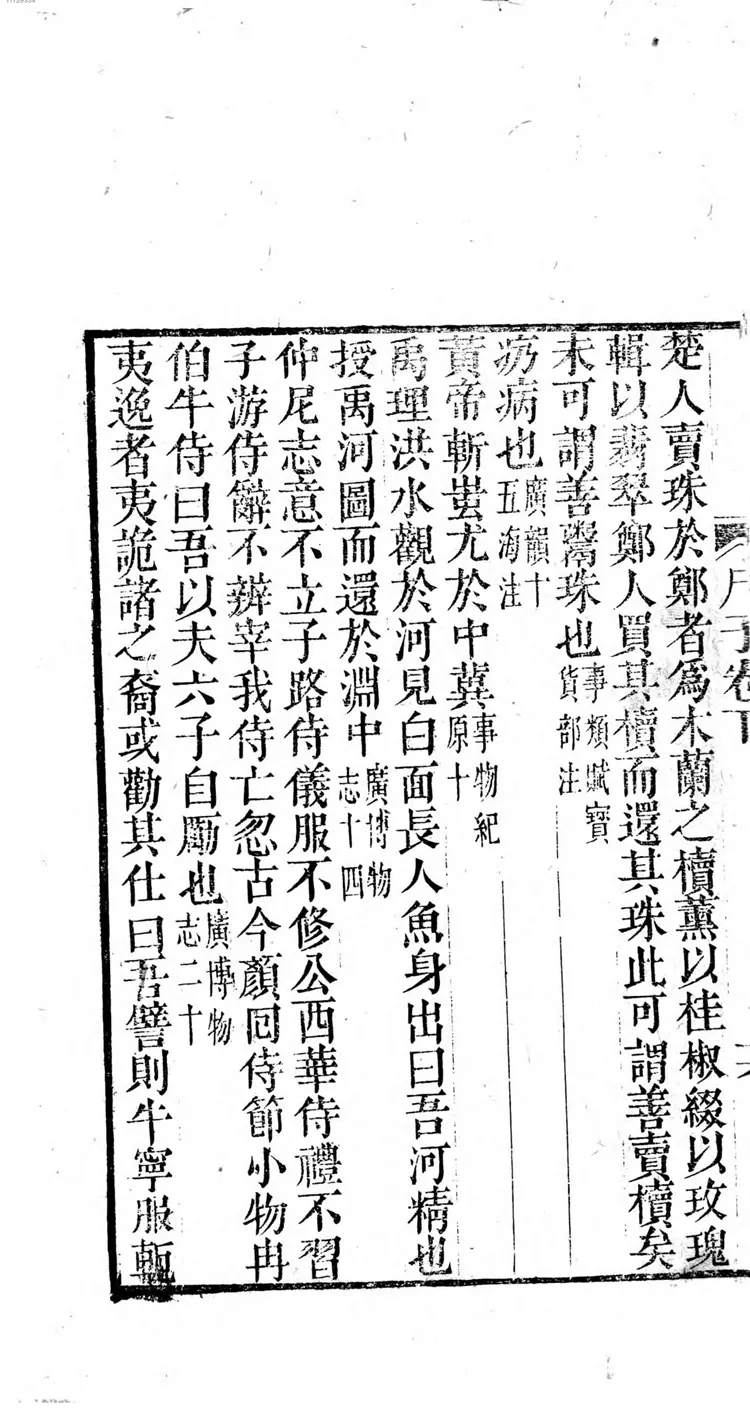 尸子卷下
楚人賣珠於鄭者爲木蘭之櫝薰以桂椒綴以玫瑰
輯以翡翠鄭人買其櫝而還其珠此可謂善賣櫝矣
未可謂善鬻珠也事類賦寶貨部注
疓病也廣韻十五海注
黃帝斬蚩尤於中冀事物紀原十
禹理洪水觀於河見白面長人魚身出曰吾河精也
授禹河圖而還於淵中廣博物志十四
仲尼志意不立子路侍儀服不修公西華侍禮不習
子游侍辭不辨宰我侍亡忽古今顏回侍節小物冉
伯牛侍曰吾以夫六子自勵也廣博物志二十
夷逸者夷詭諸之裔或勸其仕曰吾譬則牛寧服軛